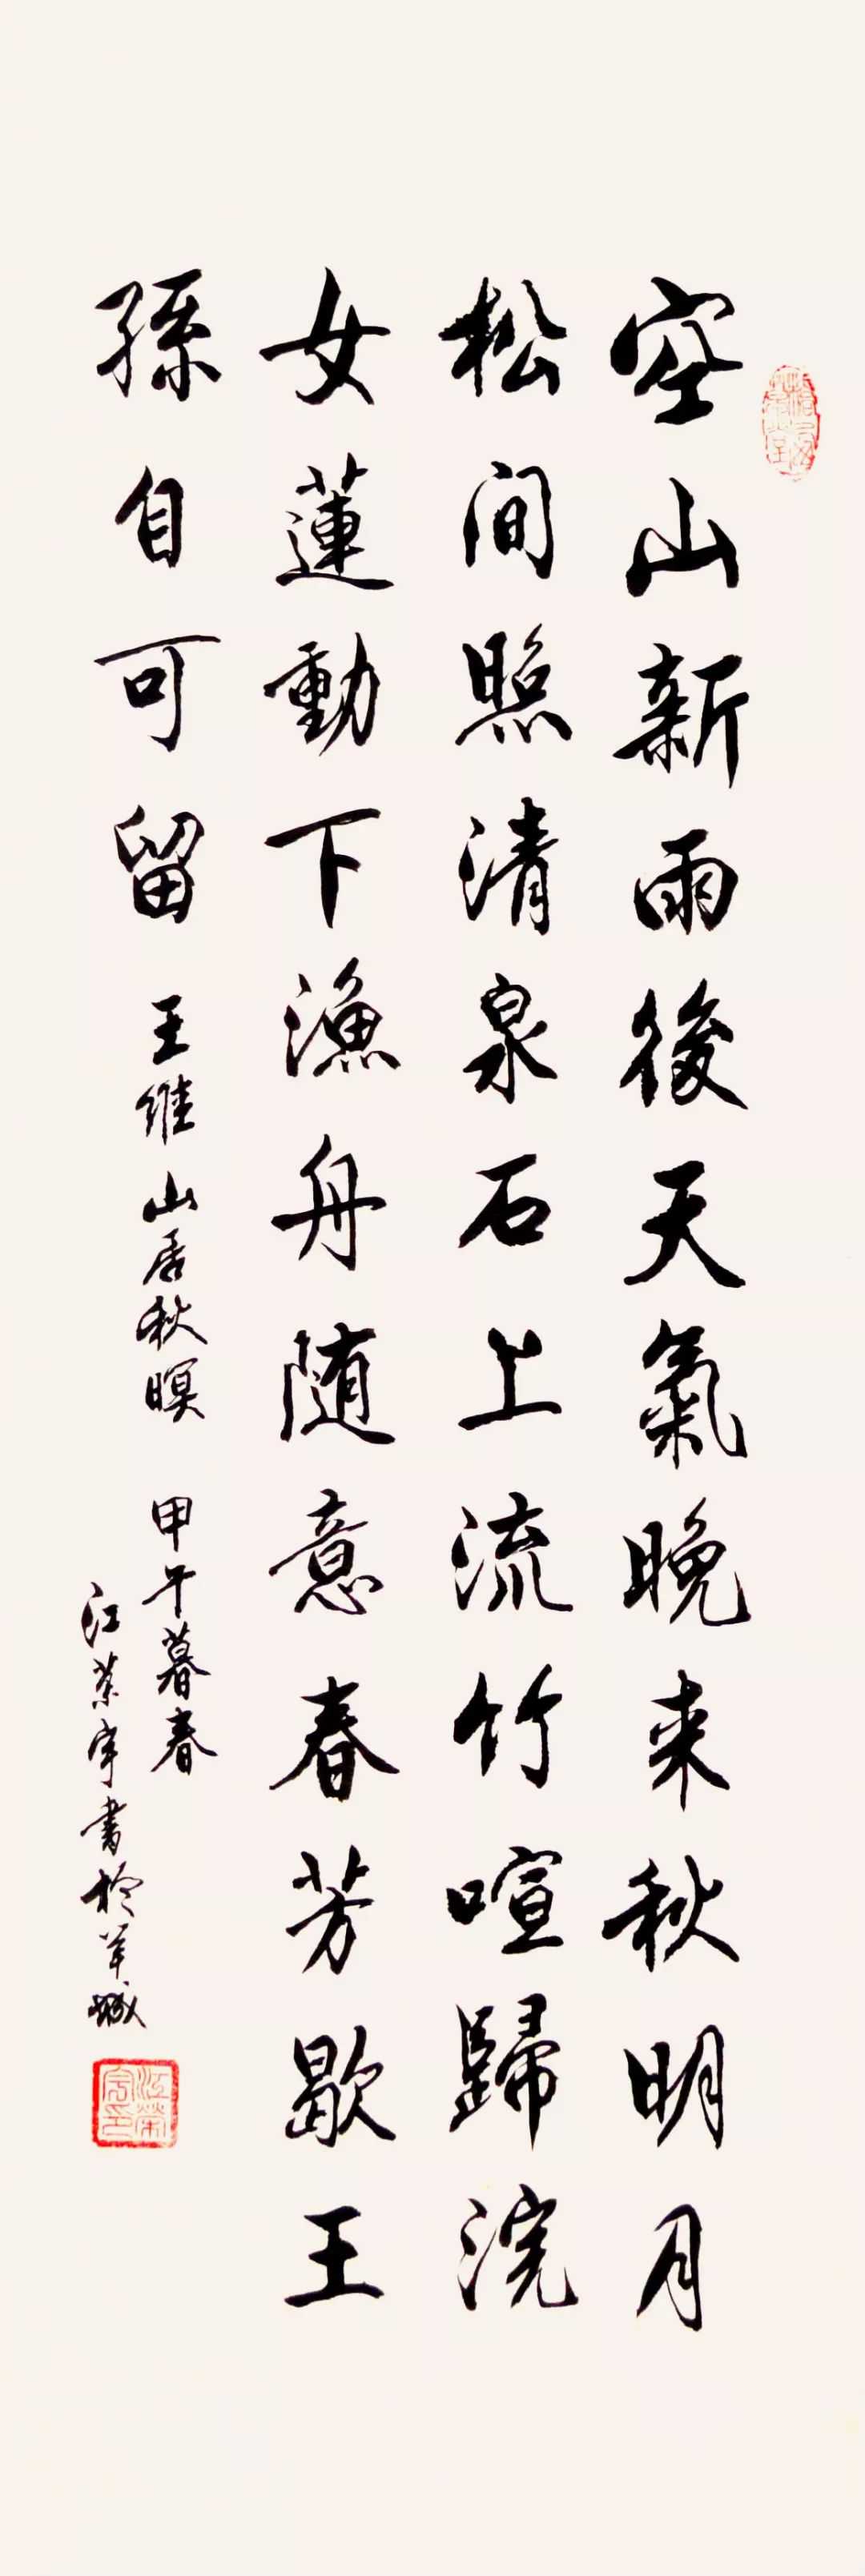 空山新雨後天氣晚来秋明月
松间照清泉石上流竹喧歸浣
女蓮動下漁舟随意春芳歇王
孫自可留
王维山居秋暝
甲午暮春
江荣宇書於羊城